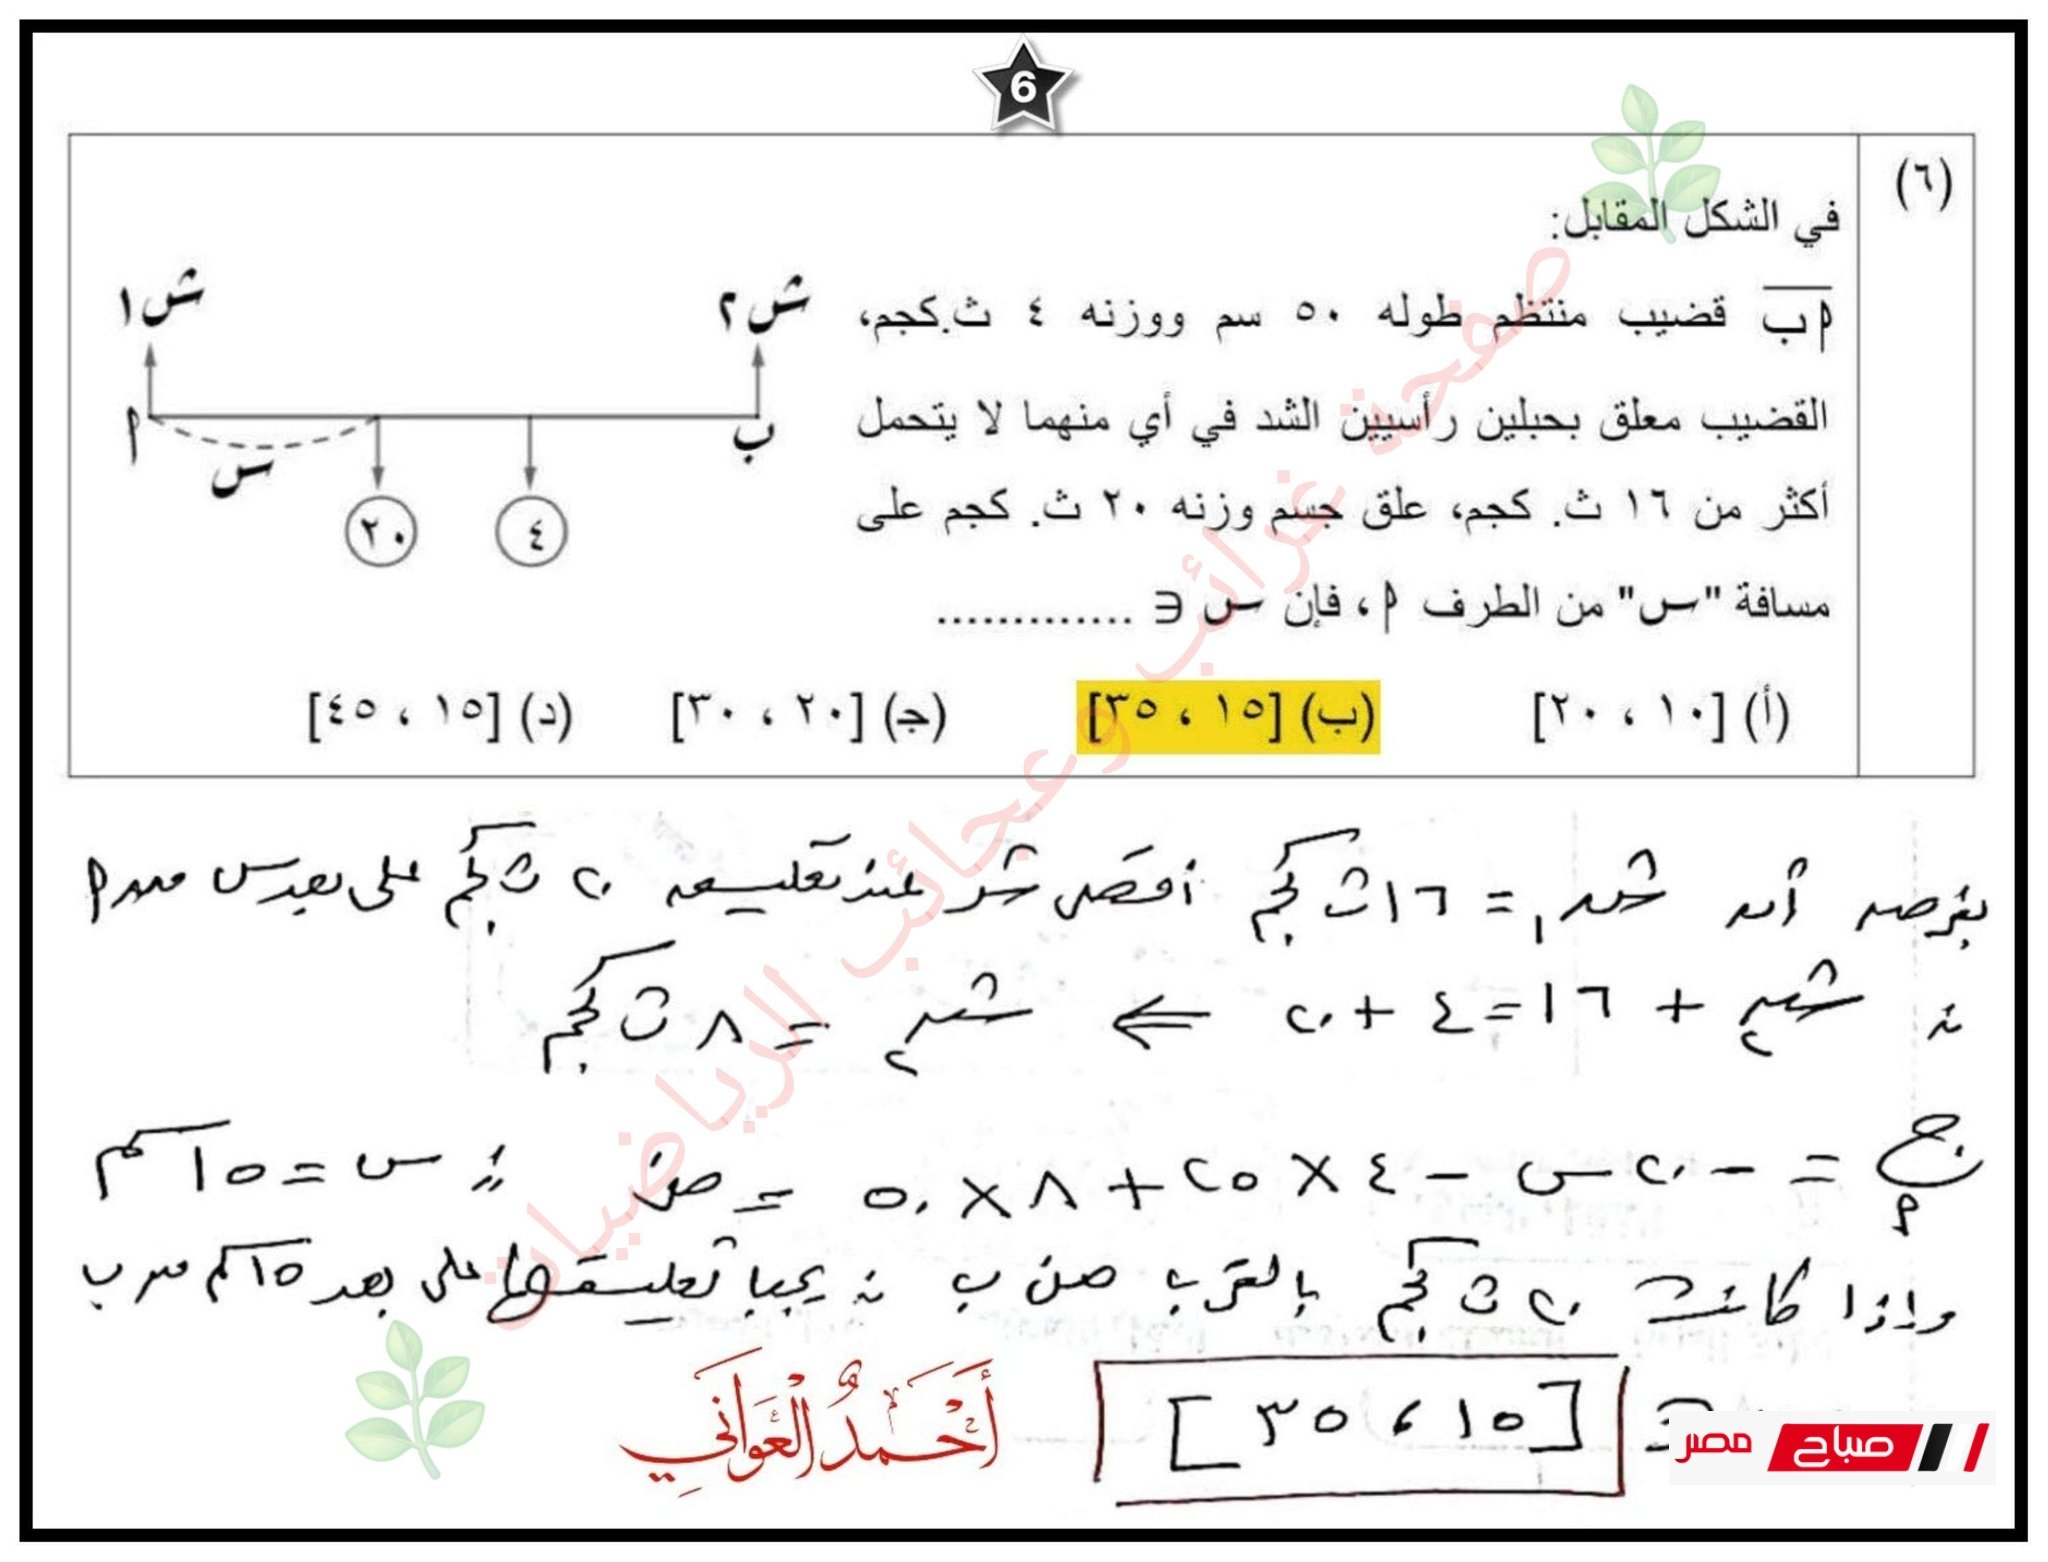 6
(٦)
في الشكل المقابل:
أب قضيب منتظم طوله ٥٠ سم ووزنه ٤ ث.كجم،
القضيب معلق بحبلين رأسيين الشد في أي منهما لا يتحمل
أكثر من ١٦ ث. كجم، علق جسم وزنه ٢٠ ث. كجم على
مسافة "س" من الطرف أ، فإن س ∈ .............
ش١ ش٢
أ ب
س
٢٠ ٤
(أ) [١٠ ، ٢٠] (ب) [١٥ ، ٣٥] (ج) [٢٠ ، ٣٠] (د) [١٥ ، ٤٥]
بفرض أن ش١ = ١٦ ث كجم أقصى شد عند تعليق ٢٠ ث كجم على بعد س من أ
∴ ش٢ + ١٦ = ٤ + ٢٠ ⇐ ش٢ = ٨ ث كجم
ج أ = - ٢٠ س - ٤ × ٢٥ + ٨ × ٥٠ = صفر ∴ س = ١٥ سم
وإذا كانت ٢٠ ث كجم بالقرب من ب ∴ يجب تعليقها على بعد ١٥ سم من ب
∈ [١٥ ، ٣٥]
أحمد العواني
صفحة غرائب وعجائب الرياضيات
صباح مصر